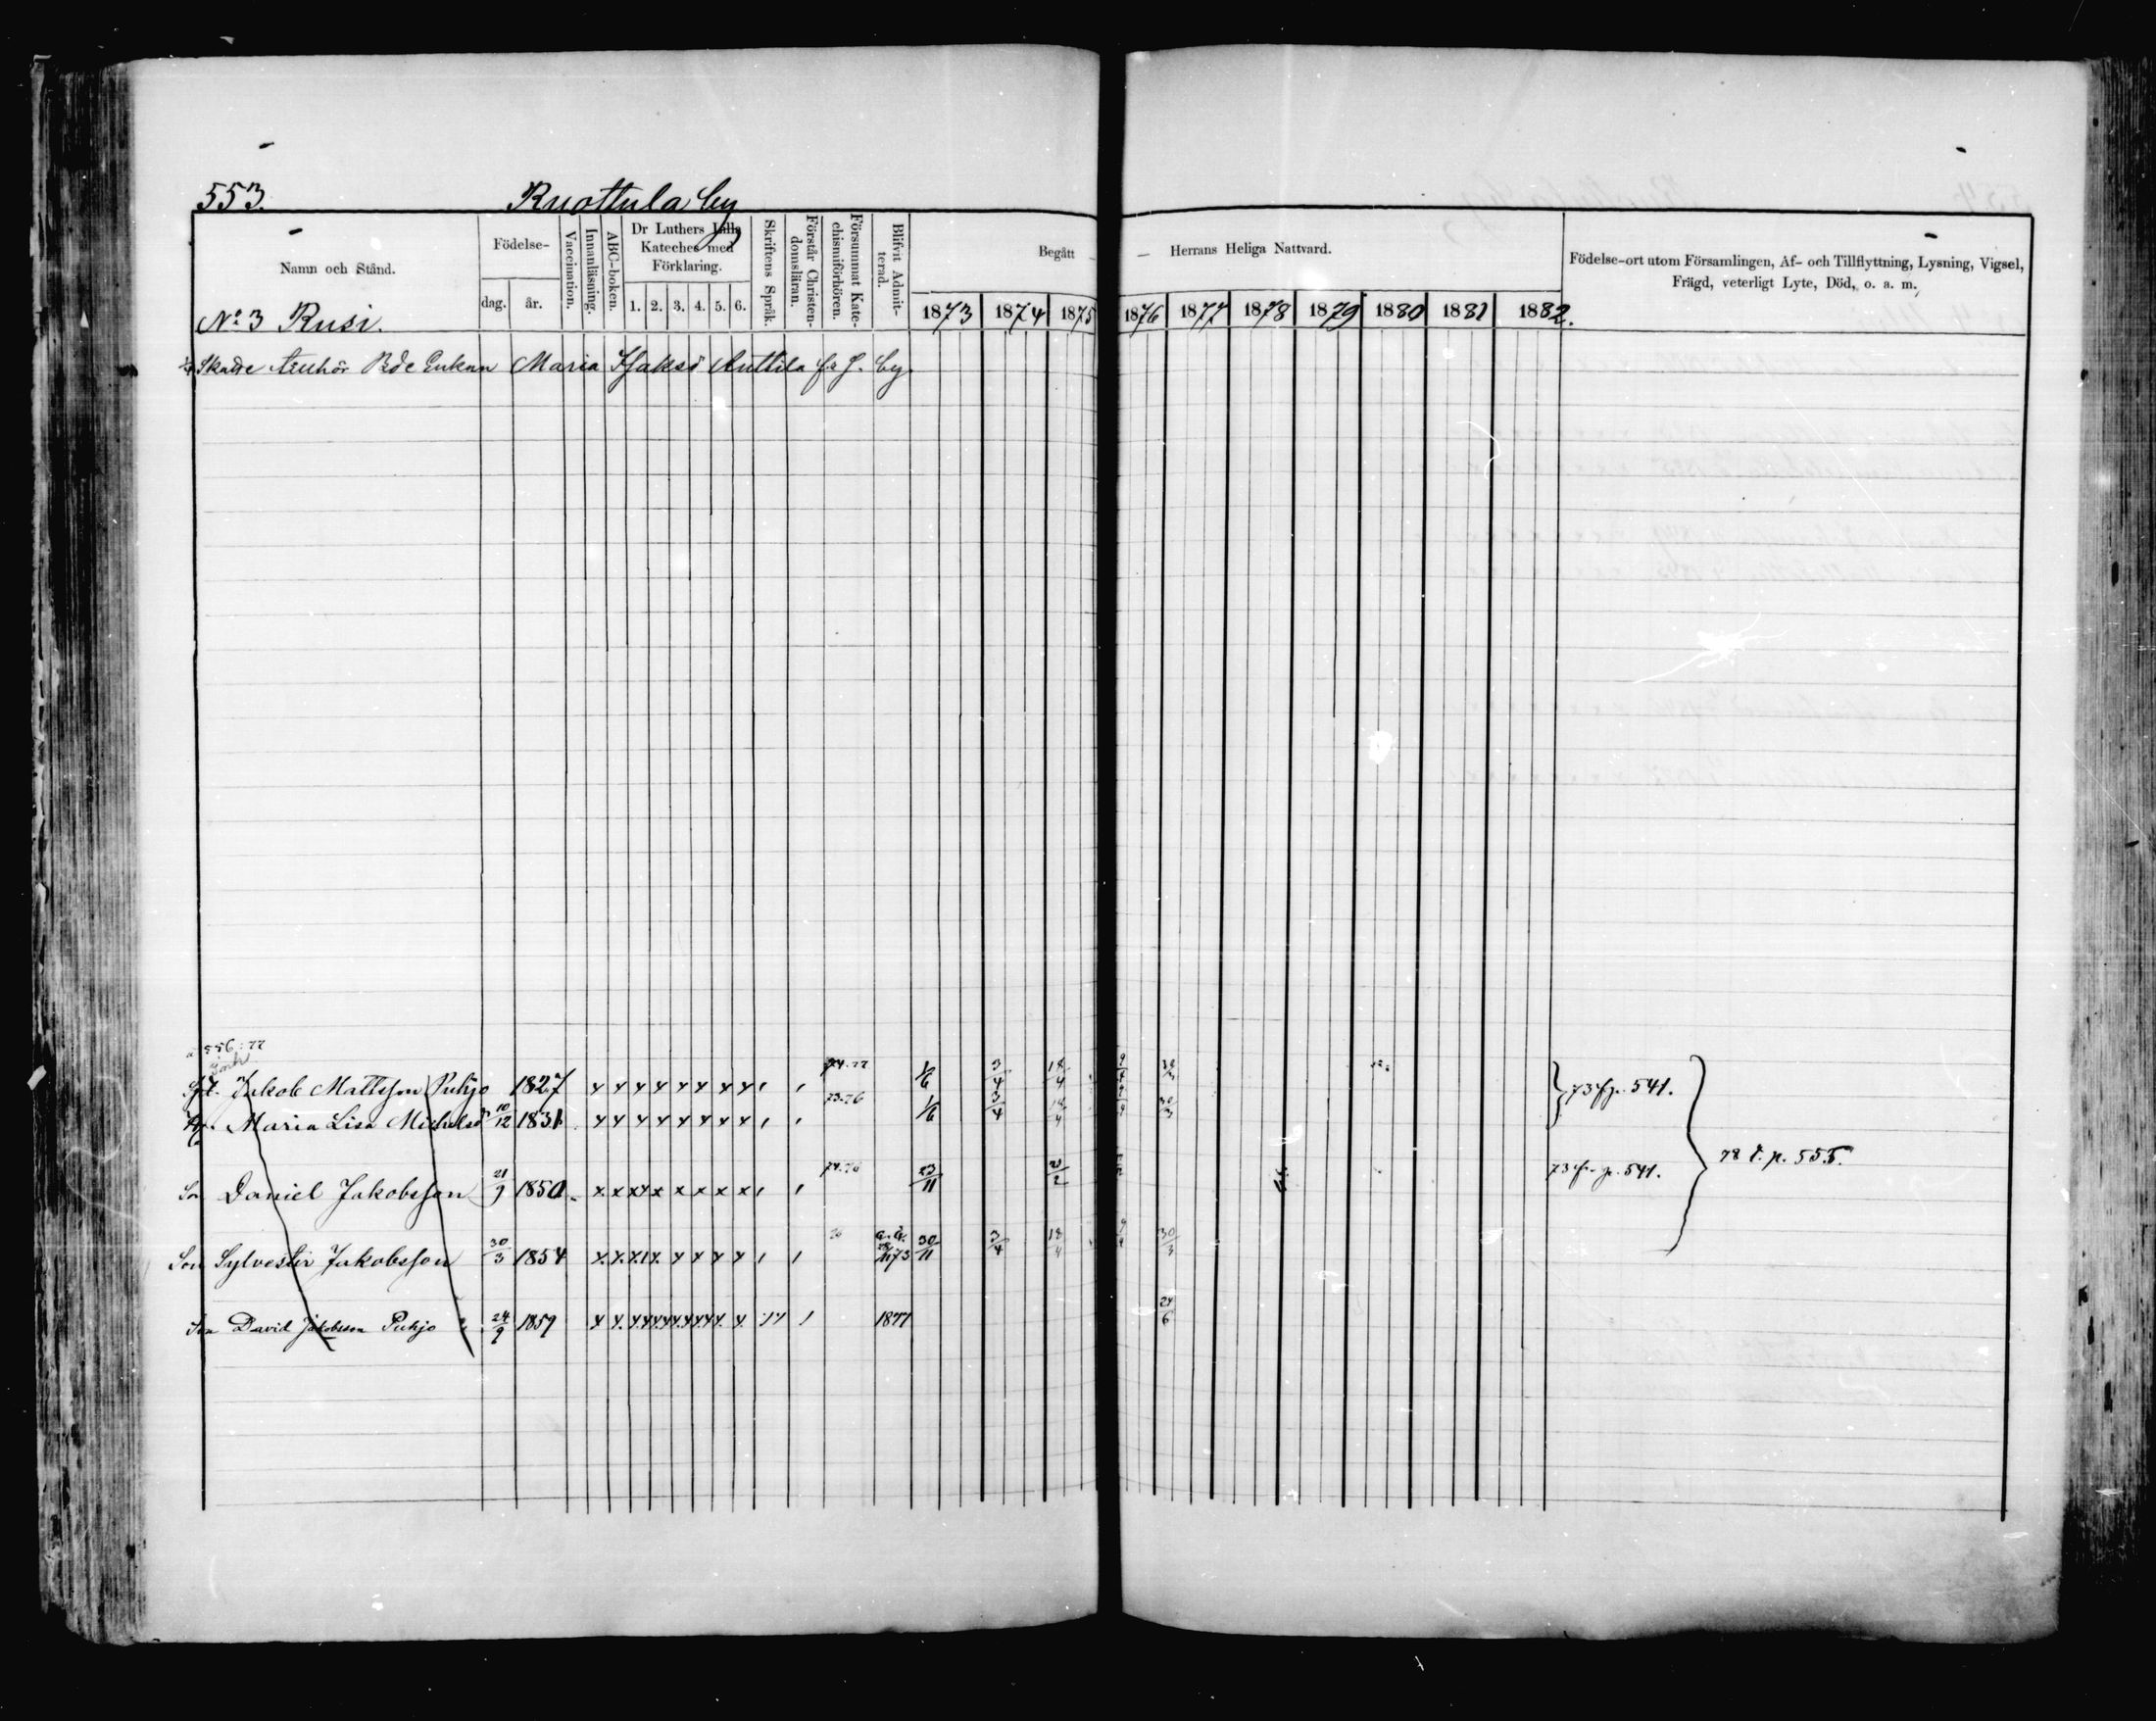 553. Ruottula by
Namn och Stånd.
Födelse-
dag. år.
Vaccination.
Innanläsning.
ABC-boken.
Dr Luthers Lilla
Kateches med
Förklaring.
1. 2. 3. 4. 5. 6.
Skriftens Språk.
Förstår Christen-
domsläran.
Försummat Kate-
chismiförhören.
Blifvit Admit-
terad.
Begått — Herrans Heliga Nattvard.
1873 1874 1875 1876 1877 1878 1879 1880 1881 1882.
Födelse-ort utom Församlingen, Af- och Tillflyttning, Lysning, Vigsel,
Frägd, veterligt Lyte, Död, o. a. m.
No 3 Rusi.
Bde Enkan Maria Antila by
556:77
Jakob Mattsson Puhjo 1827 x x x x x x x x 74.77 1/6 3/4 18/4 30/3 73 fr p. 541.
Maria Lisa Michelsd 10/12 1831 x x x x x x x x 73.76 1/6 3/4 18/4 30/3
Son Daniel Jakobsson 21/9 1850 x x x x x x x x x 23/11 2/2 73 fr p. 541. 78 t. p. 555.
Son Sylvester Jakobsson 30/3 1854 x x x x x x x x 73 30/11 3/4 18/4 30/3
Son David Jakobsson Puhjo 24/9 1859 x x x x x x x x x 1877 24/6